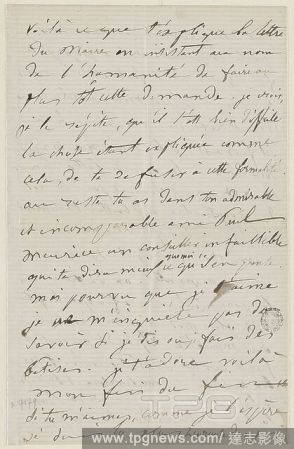 voilà ce que t'explique la lettre
du Maire en insistant au nom
de l'humanité de faire au
plus tôt cette demande. je crois,
je le répète, qu'il t'est bien difficile
la chose étant expliquée comme
cela, de te refuser à cette formalité.
au reste tu as dans ton admirable
et incomparable ami Paul
Meurice un conseiller infaillible
qui te dira mieux que moi ce qu'il en
mais pourvu que je t'aime
je ne m'inquiète pas de
savoir si je dis ou fais des
bêtises. je t'adore voilà
mon fin du fin
si tu m'aimes, comme je l'espère
je
www.tpgnews.com / 達志影像
TPG